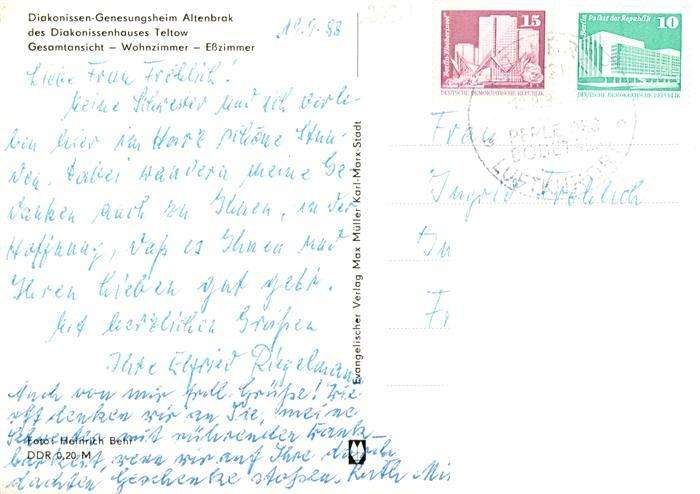 Diakonissen-Genesungsheim Altenbrak
des Diakonissenhauses Teltow
Gesamtansicht – Wohnzimmer – Eßzimmer
19.9.83
Liebe Frau Fröhlich!
Meine Schwester und ich verle-
ben hier im Harz schöne Stun-
den. Dabei wandern meine Ge-
danken auch zu Ihnen, in der
Hoffnung, daß es Ihnen und
Ihren Lieben gut geht.
Mit herzlichen Grüßen
Ihre Elfried Riegelmann
Auch von mir frdl. Grüße! Wie
oft denken wir an Sie, meine
Schwester mit rührender Dank-
barkeit, wenn wir auf Ihre
dachten Geschenke stoßen. Ruth
Foto: Heinrich Behr
DDR 0,20 M
Evangelischer Verlag Max Müller Karl-Marx-Stadt
15
Berlin
DEUTSCHE DEMOKRATISCHE REPUBLIK
10
Berlin, Palast der Republik
DEUTSCHE DEMOKRATISCHE REPUBLIK
PERLE DES
BODETALES
LUFTKURORT
Frau
Ingrid Fröhlich